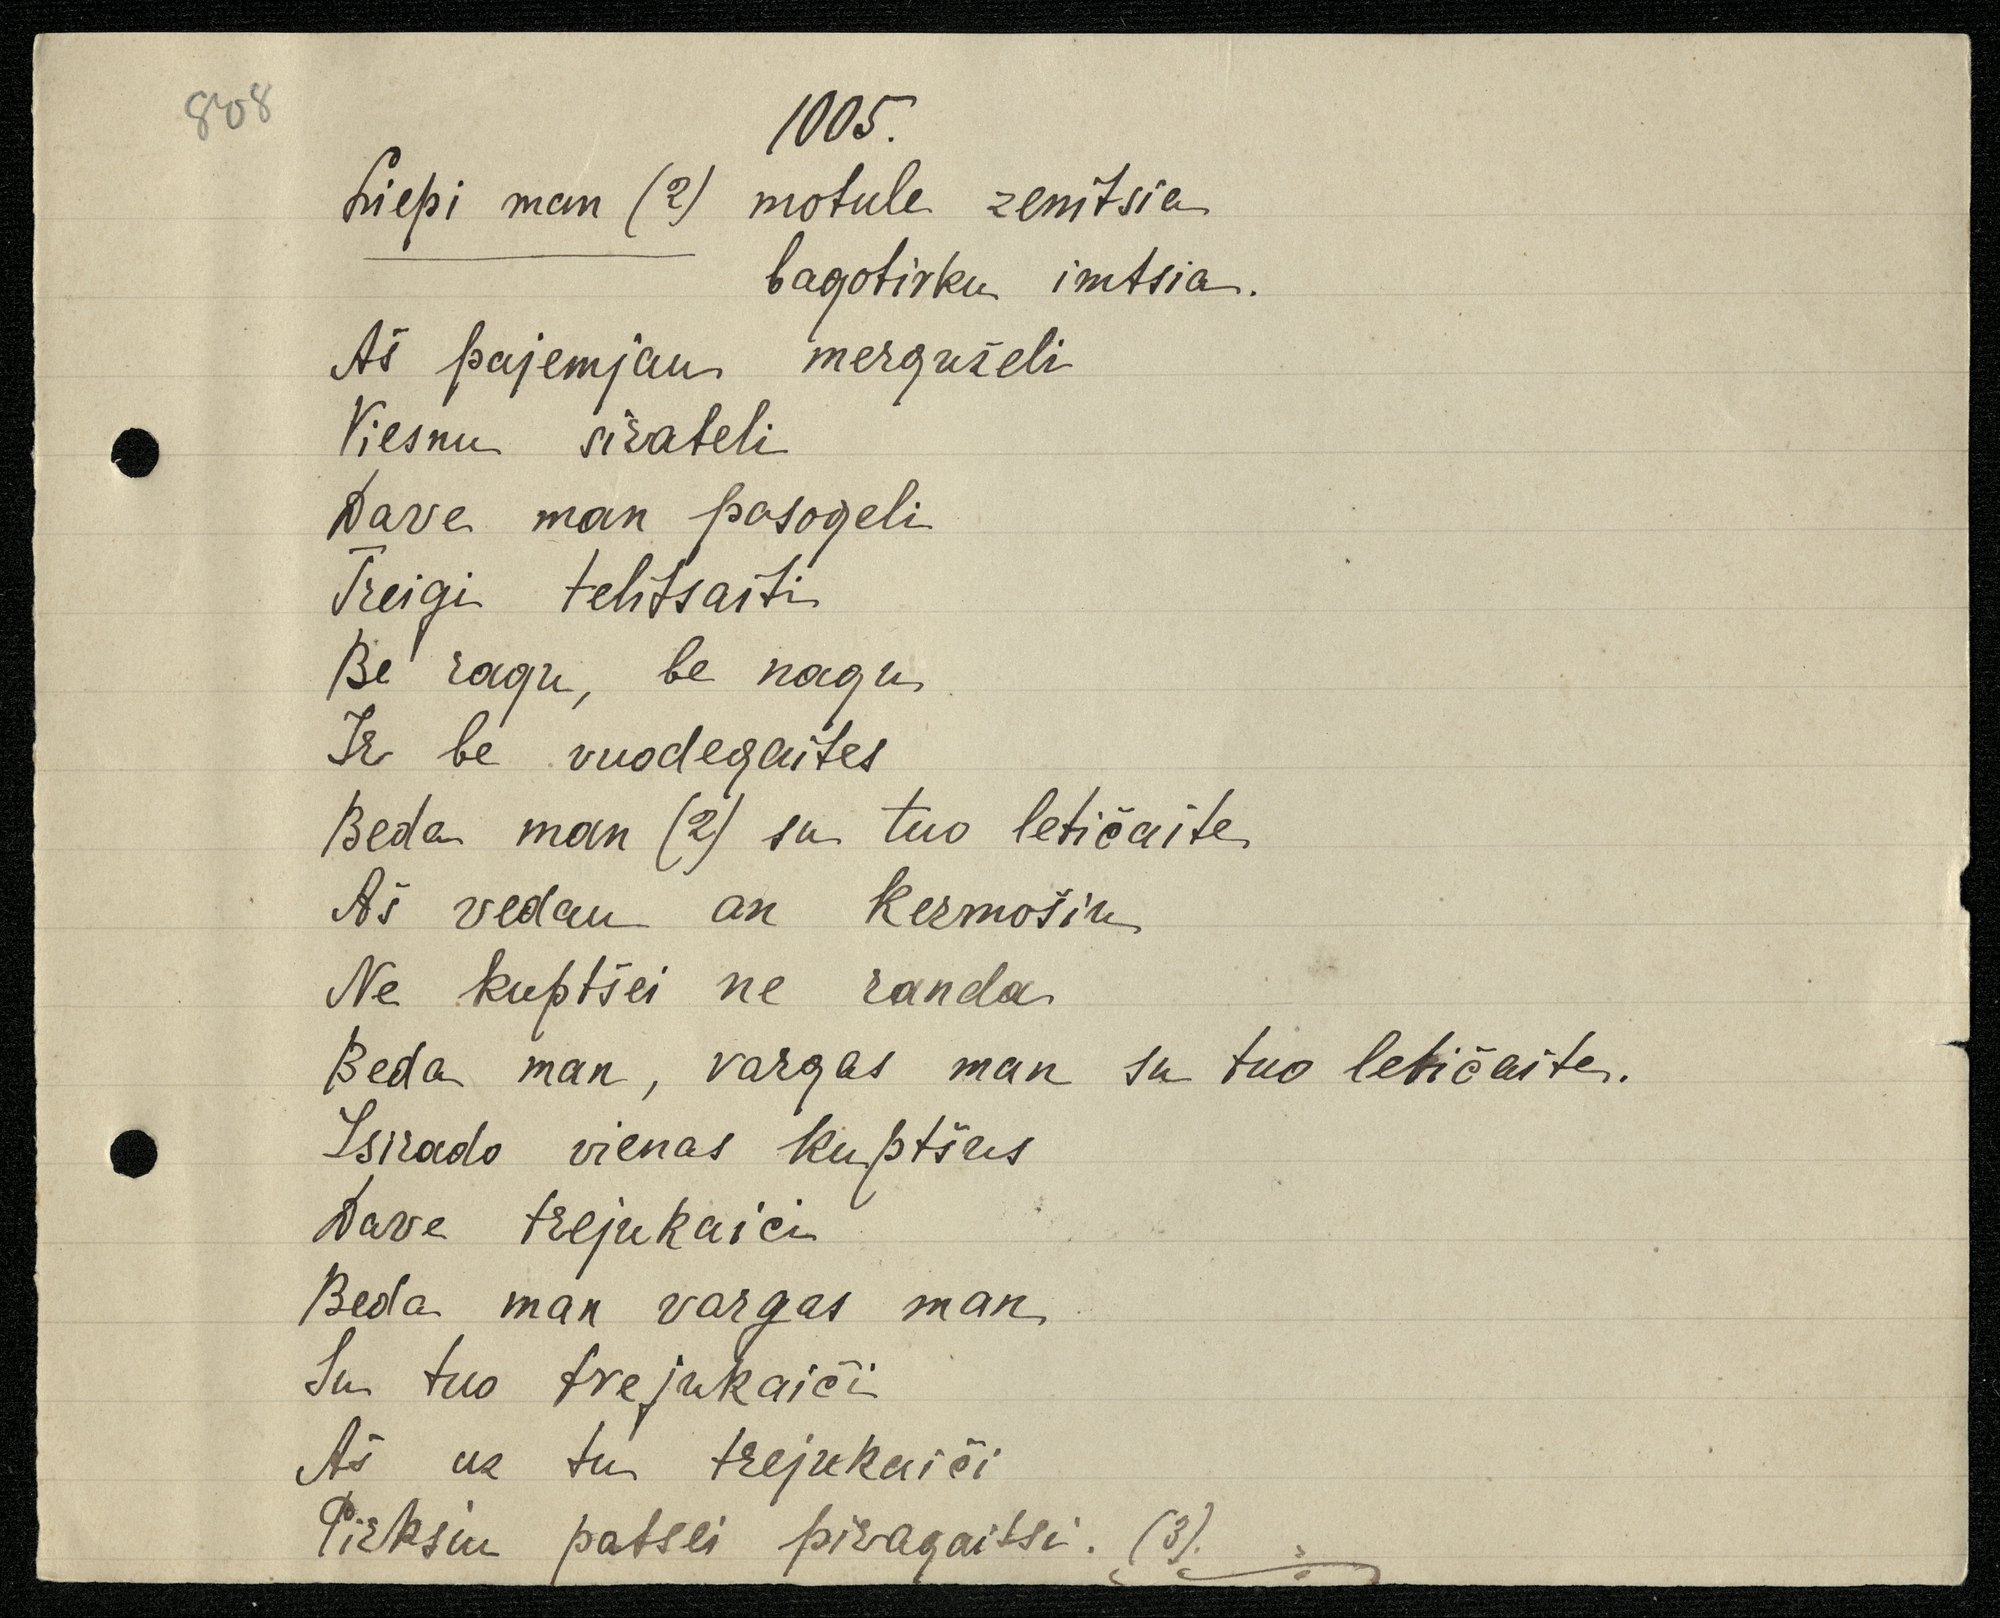 808
1005.
Liepi man (2) motule zenitsia
bagotirku imtsia.
Aš pajemjau merguželi
Viesnu sirateli
Dave man pasogeli
Treigi telitsaiti
Be ragu, be nagu
Ir be vuodegaites
Beda man (2) su tuo letičaite
Aš vedau an kermošiu
Ne kuptšei ne randa
Beda man, vargas man su tuo letičaite.
Isirado vienas kuptšus
Dave trejukaici
Beda man vargas man
Su tuo trejukaiči
Aš uz tu trejukaiči
Pirksiu patsei piragaitsi. (3).